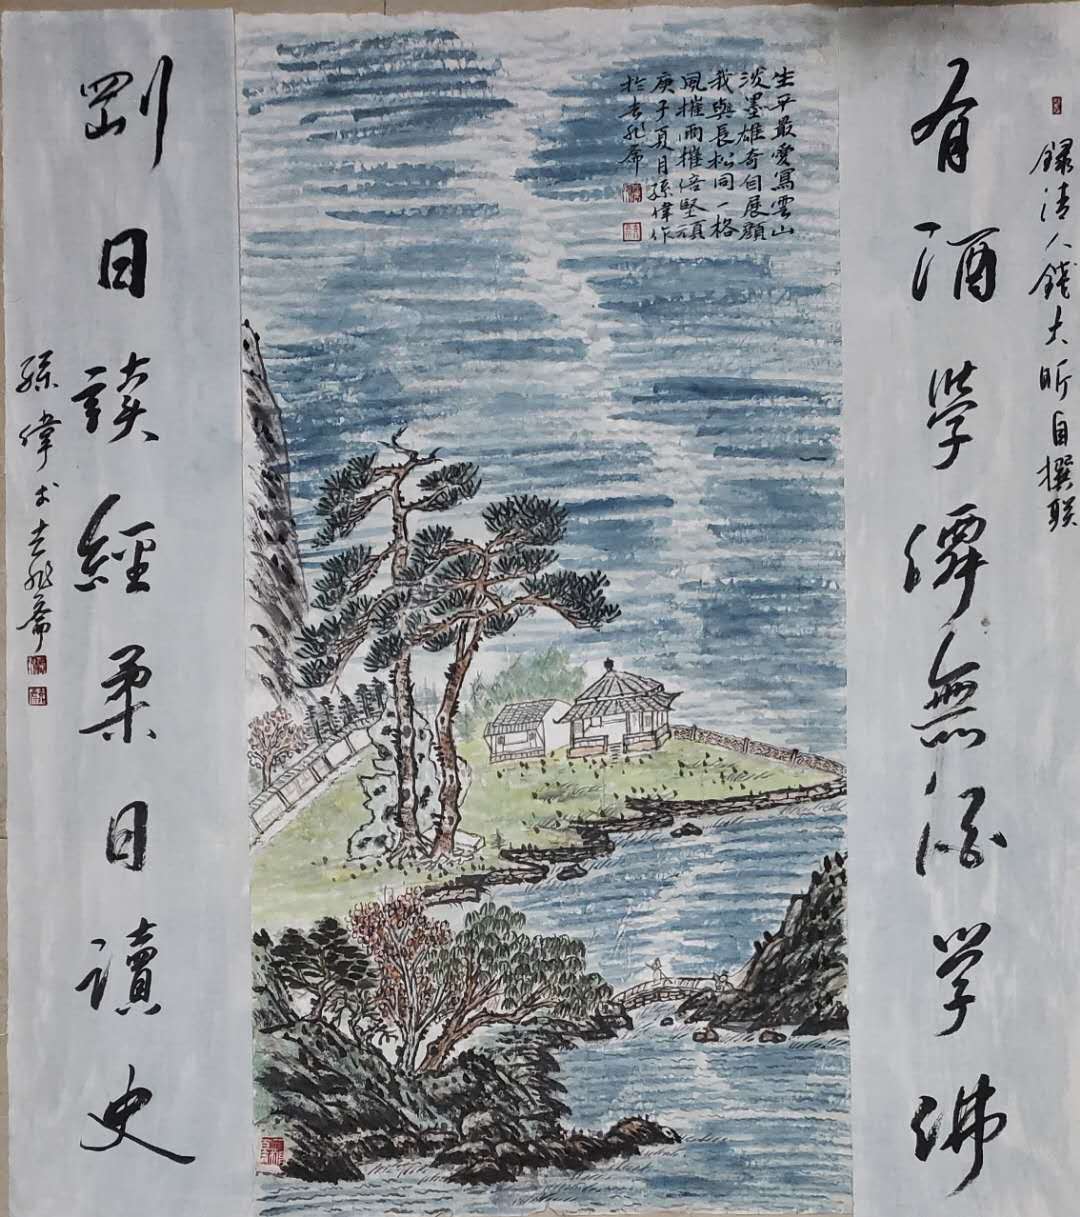 錄清人錢大昕自撰联
有酒學僊無酒学佛
生平最愛寫雲山
淡墨雄奇自展顏
我與長松同一格
風摧雨摧倍堅頑
庚子夏月孫偉作
於去非齋
剛日讀經柔日讀史
孫偉於去非齋